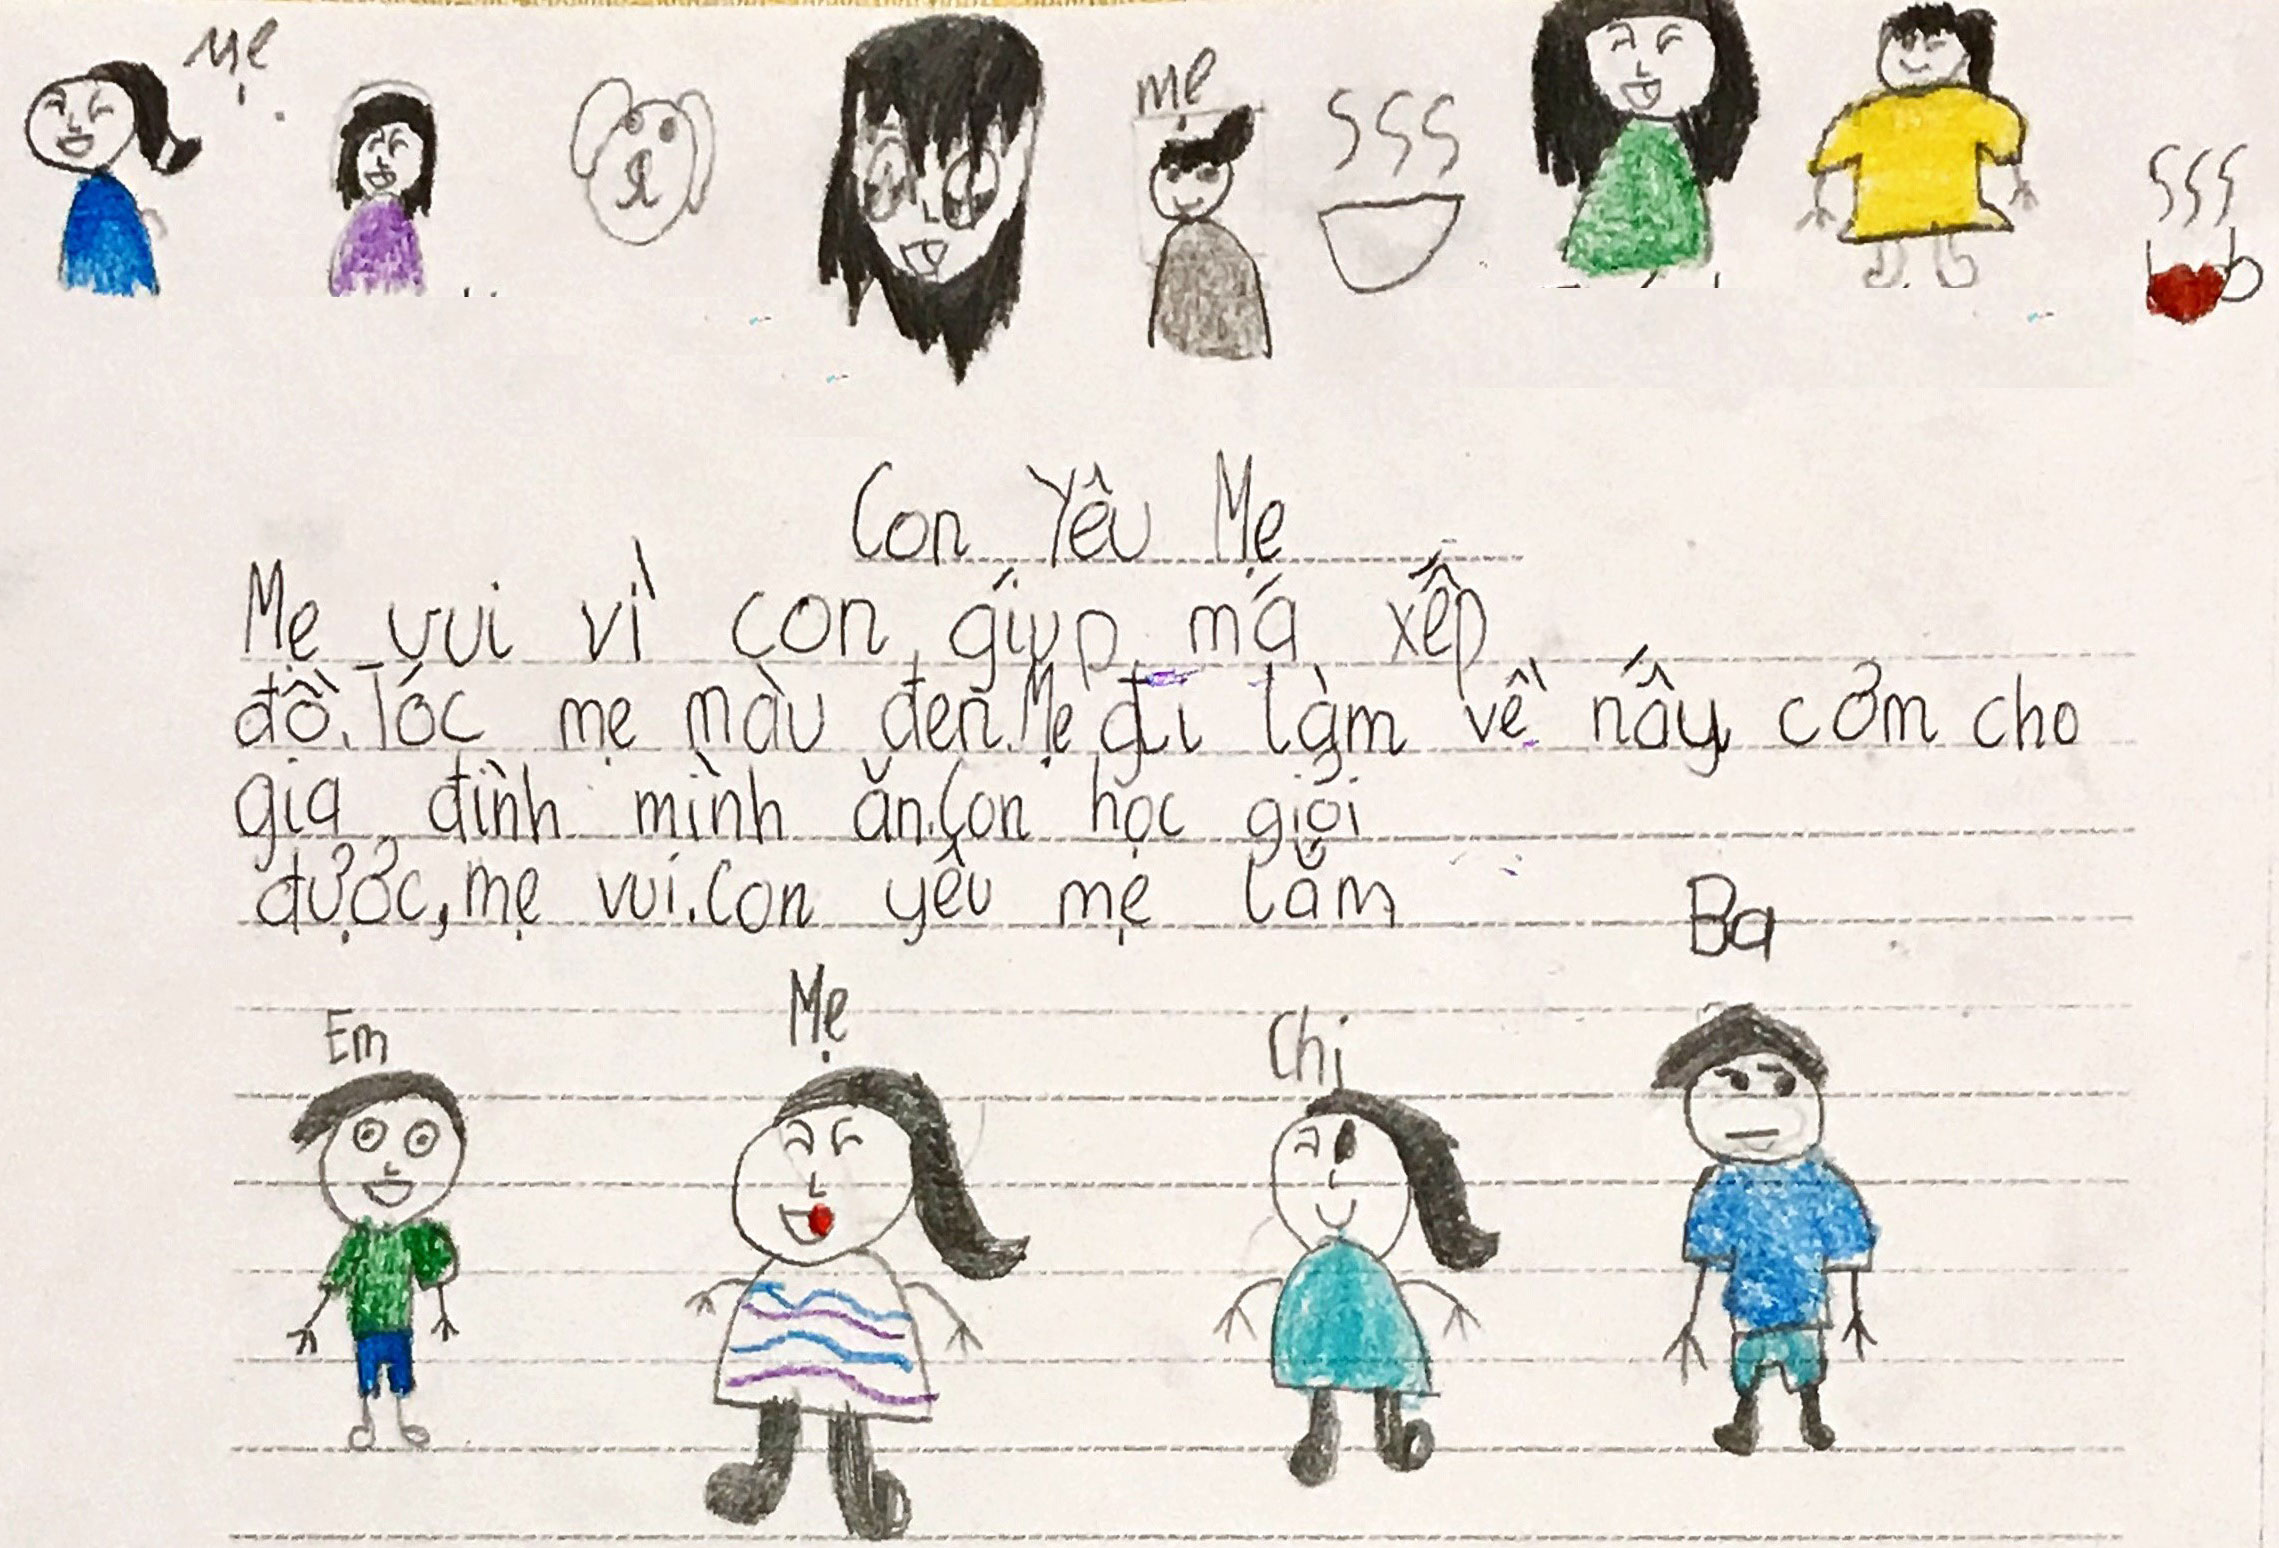 Mẹ
mẹ
Con Yêu Mẹ
Mẹ vui vì con giúp má xếp
đồ. Tóc mẹ màu đen. Mẹ đi làm về nấy cơm cho
gia đình mình ăn. Con học giỏi
được, mẹ vui. Con yêu mẹ lắm
Ba
Em
Mẹ
Chị